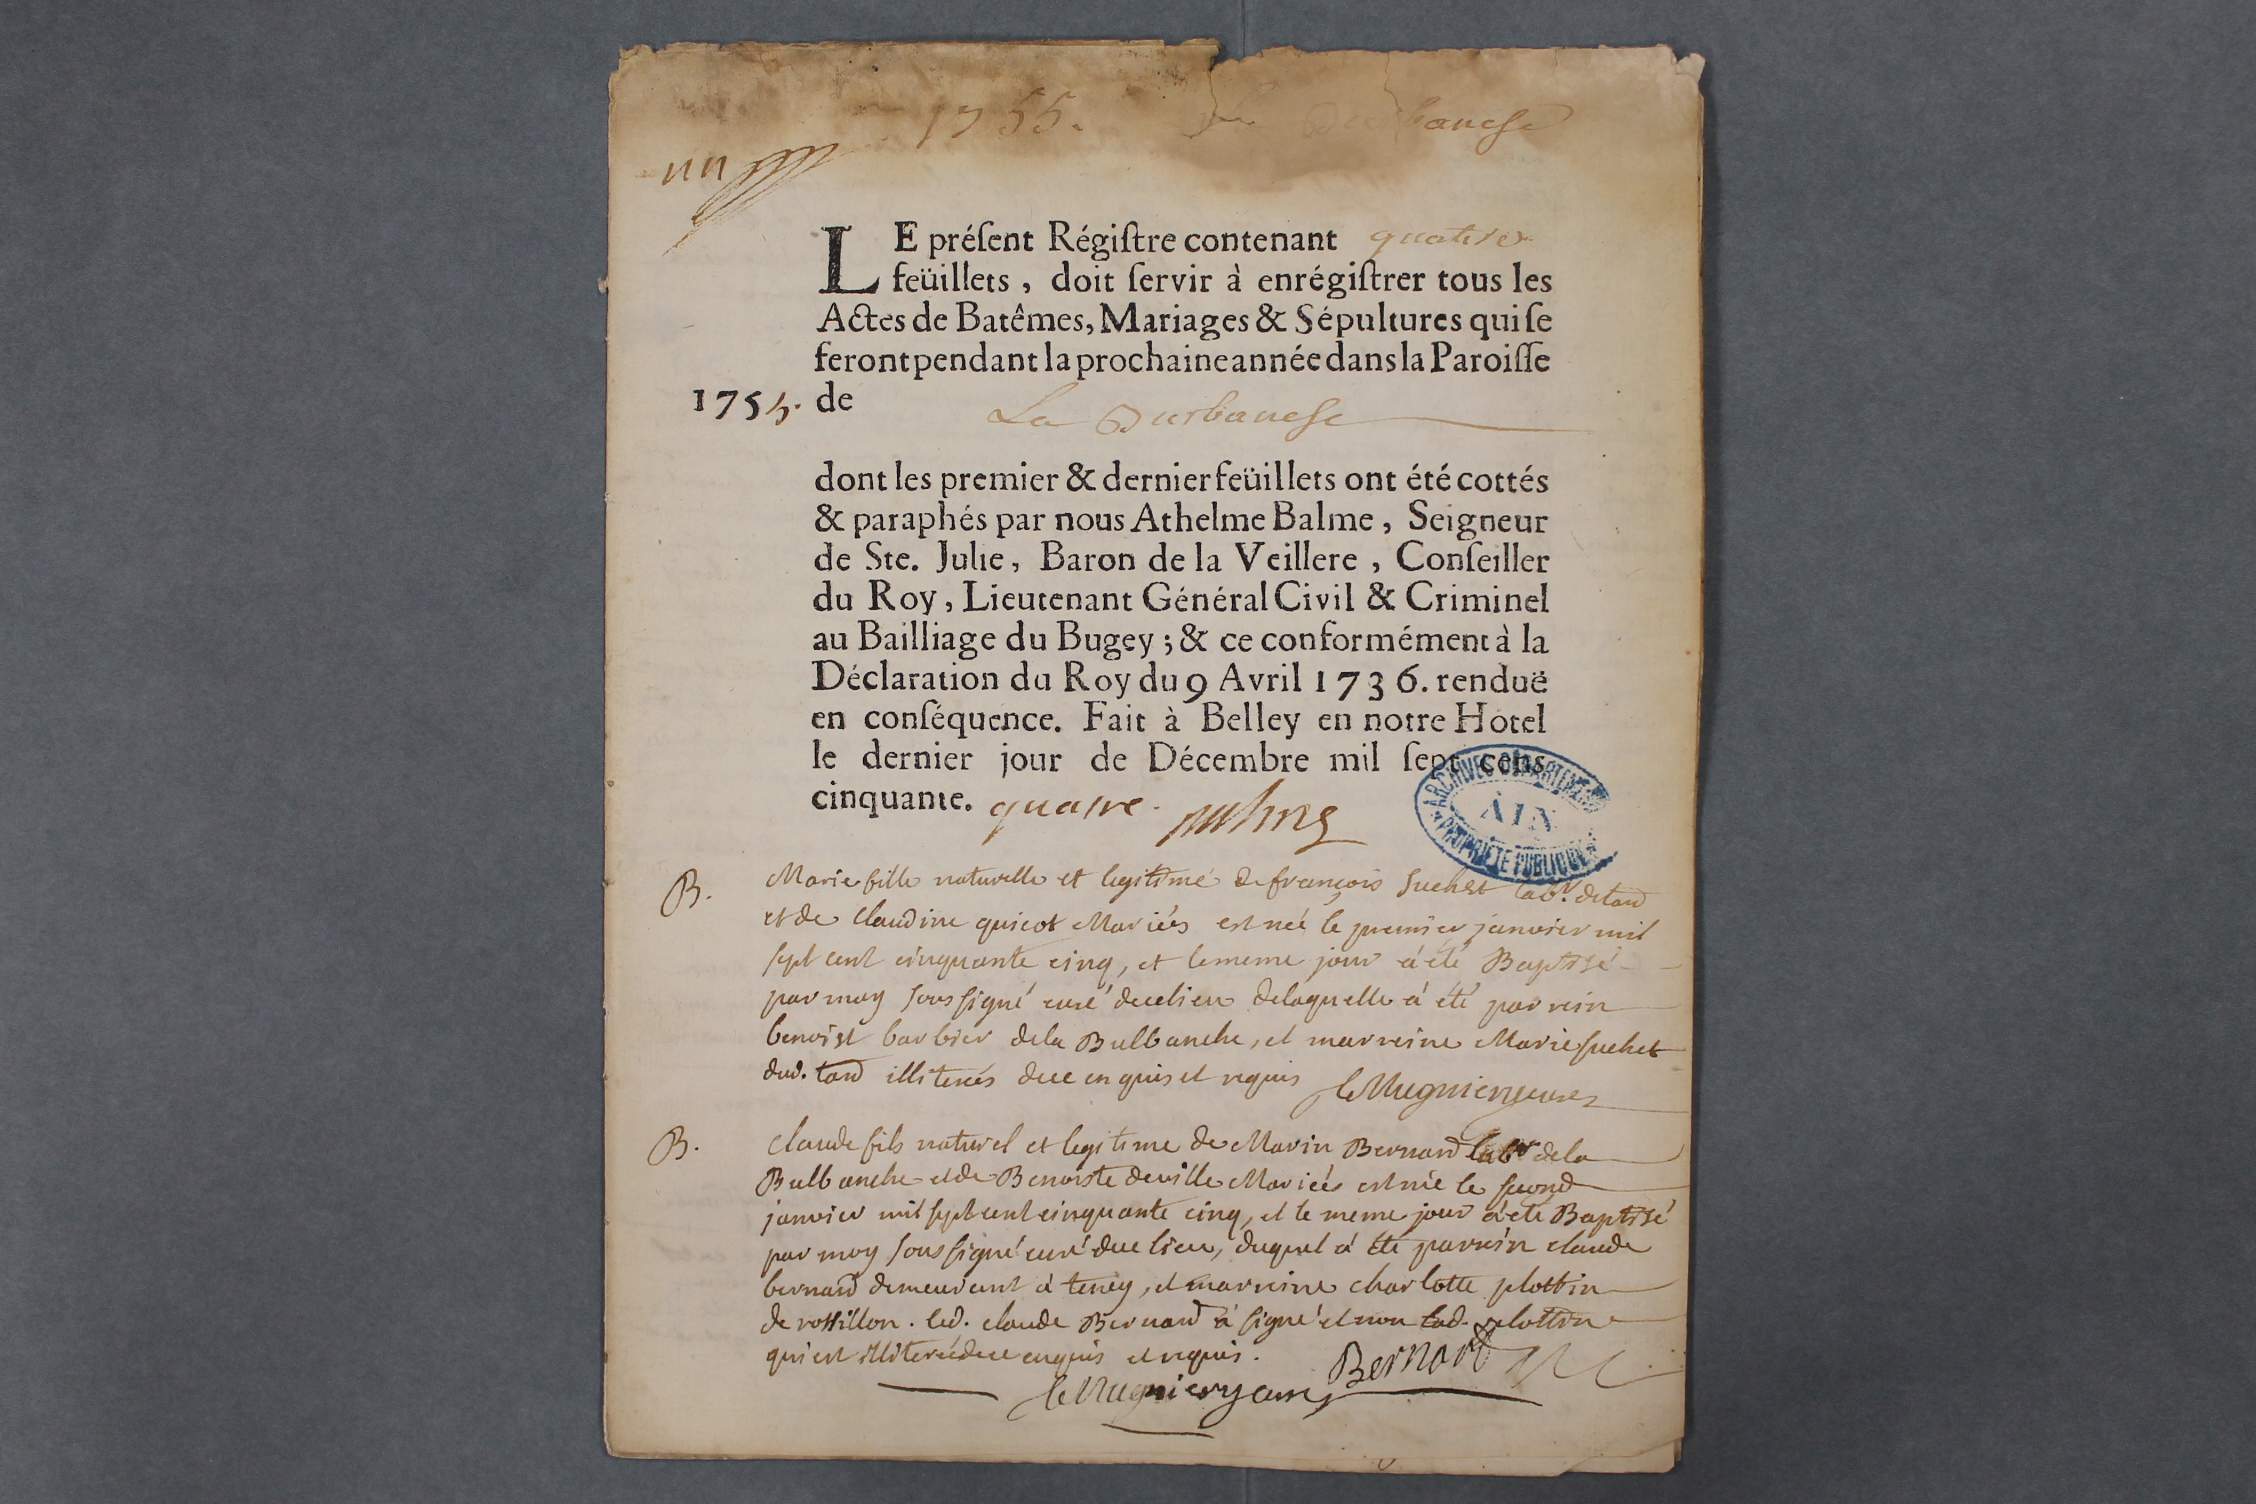 1755. La Burbanche
un
LE préſent Régiſtre contenant quatre
feüillets, doit ſervir à enrégiſtrer tous les
Actes de Batêmes, Mariages & Sépultures qui ſe
feront pendant la prochaine année dans la Paroiſſe
1755. de
La Burbanche
dont les premier & dernier feüillets ont été cottés
& paraphés par nous Athelme Balme, Seigneur
de Ste. Julie, Baron de la Veillere, Conſeiller
du Roy, Lieutenant Général Civil & Criminel
au Bailliage du Bugey; & ce conformément à la
Déclaration du Roy du 9 Avril 1736. renduë
en conſéquence. Fait à Belley en notre Hotel
le dernier jour de Décembre mil ſept cens
cinquante. quatre.
ARCHIVES DEPARTEMENTALES
AIN
PROPRIETE PUBLIQUE
B. Marie fille naturelle et legitime de françois Suchet labr. de tard
et de Claudine quicot Mariés est neé le premier janvier mil
sept cent cinquante cinq, et le meme jour á été Baptisé
par moy soussigné curé de ce lieu de laquelle á été parrein
benoist barbier de la Bulbanche, et marreine Marie suchet
dud. tard illiterés de ce enquis et requis C Mugnier curé
B. Claude fils naturel et legitime de Marin Bernard labr de la
Bulbanche et de Benoiste deville Mariés est né le second
janvier mil sept cent cinquante cinq, et le meme jour á été Baptisé
par moy soussigné curé de ce lieu, duquel á été parrein claude
bernard demeurant á teney, et marreine charlotte plottin
de rossillon. led. claude Bernard á signé et non lad. plottin
qui est illiterée de ce enquis et requis. Bernard
C Mugnier curé